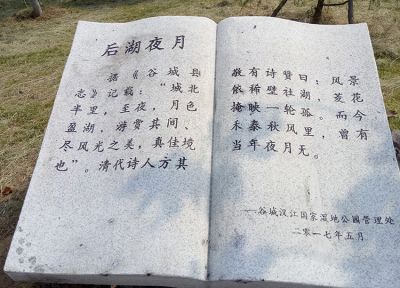 后湖夜月
据《谷城县
志》记载：“城北
半里，至夜，月色
盈湖，游赏其间、
尽风光之美，真佳境
也”。清代诗人方其
敬有诗赞曰：风景
依稀壁社湖，菱花
掩映一轮孤。而今
禾泰秋风里，曾有
当年夜月无。
谷城汉江国家湿地公园管理处
二零一七年五月